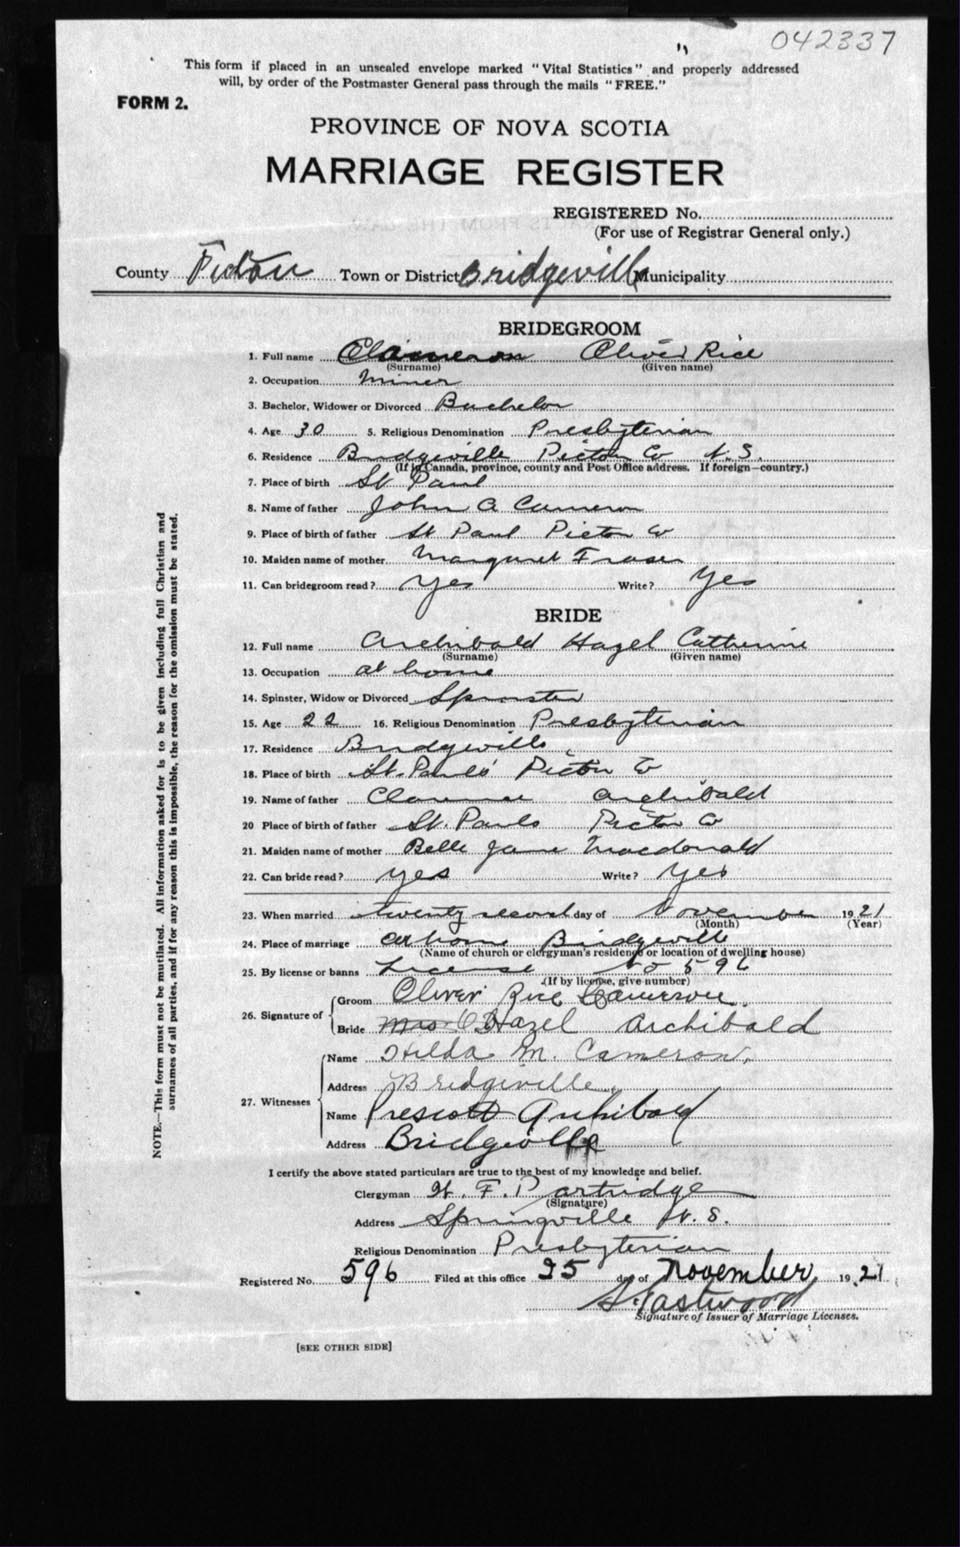 042337
This form if placed in an unsealed envelope marked "Vital Statistics" and properly addressed
will, by order of the Postmaster General pass through the mails "FREE."
FORM 2.
PROVINCE OF NOVA SCOTIA
MARRIAGE REGISTER
REGISTERED No.
(For use of Registrar General only.)
County Pictou Town or District Bridgeville Municipality
BRIDEGROOM
1. Full name Cameron Oliver Rice
(Surname) (Given name)
2. Occupation Miner
3. Bachelor, Widower or Divorced Bachelor
4. Age 30 5. Religious Denomination Presbyterian
6. Residence Bridgeville Pictou Co N.S.
(If in Canada, province, county and Post Office address. If foreign—country.)
7. Place of birth St Paul
8. Name of father John A Cameron
9. Place of birth of father St Paul Pictou Co
10. Maiden name of mother Margaret Fraser
11. Can bridegroom read? Yes Write? Yes
BRIDE
12. Full name Archibald Hazel Catherine
(Surname) (Given name)
13. Occupation at home
14. Spinster, Widow or Divorced Spinster
15. Age 22 16. Religious Denomination Presbyterian
17. Residence Bridgeville
18. Place of birth St. Pauls Pictou Co
19. Name of father Clarence Archibald
20 Place of birth of father St. Pauls Pictou Co
21. Maiden name of mother Belle Jane Macdonald
22. Can bride read? yes Write? yes
23. When married twenty second day of November 1921
(Month) (Year)
24. Place of marriage At home Bridgeville
(Name of church or clergyman's residence or location of dwelling house)
25. By license or banns License No 596
(If by license, give number)
26. Signature of Groom Oliver Rice Cameron
Bride Mrs O Hazel Archibald
27. Witnesses Name Hilda M. Cameron,
Address Bridgeville,
Name Prescott Archibald
Address Bridgeville
I certify the above stated particulars are true to the best of my knowledge and belief.
Clergyman H. F. Partridge
(Signature)
Address Springville N.S.
Religious Denomination Presbyterian
Registered No. 596 Filed at this office 25 day of November 1921
Eastwood
Signature of Issuer of Marriage Licenses.
[SEE OTHER SIDE]
NOTE.—This form must not be mutilated. All information asked for is to be given including full Christian and
surnames of all parties, and if for any reason this is impossible, the reason for the omission must be stated.